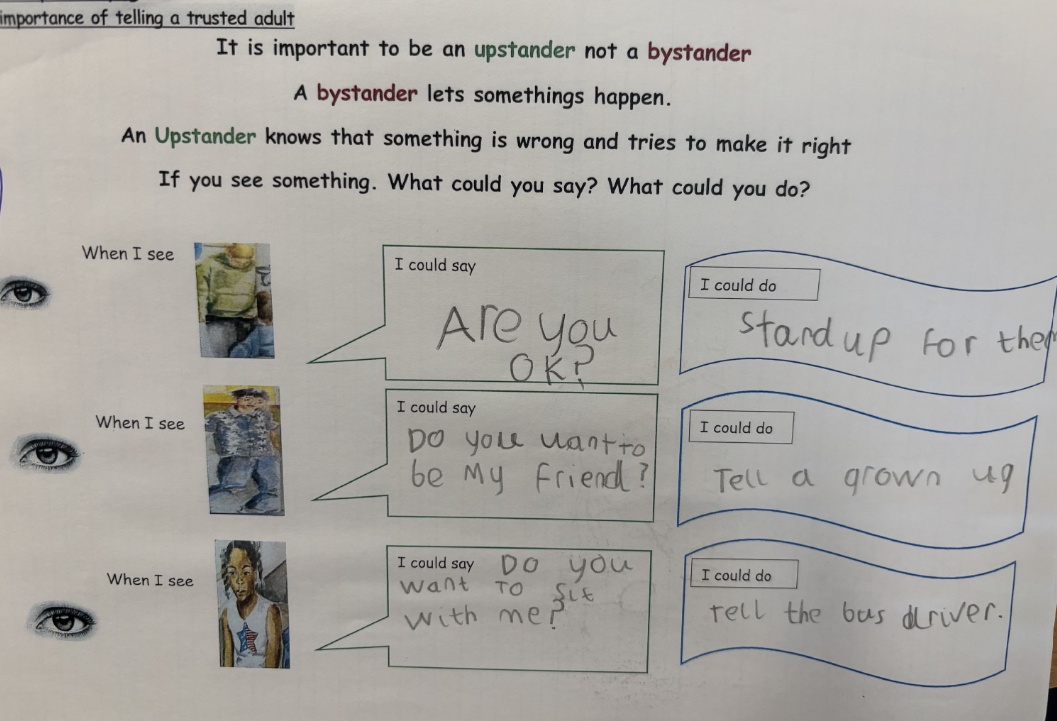 importance of telling a trusted adult
It is important to be an upstander not a bystander
A bystander lets somethings happen.
An Upstander knows that something is wrong and tries to make it right
If you see something. What could you say? What could you do?
When I see
I could say
Are you
OK?
I could do
Stand up for them
When I see
I could say
Do you want to
be My friend?
I could do
Tell a grown ug
When I see
I could say Do you
want To sit
with me?
I could do
Tell the bus driver.